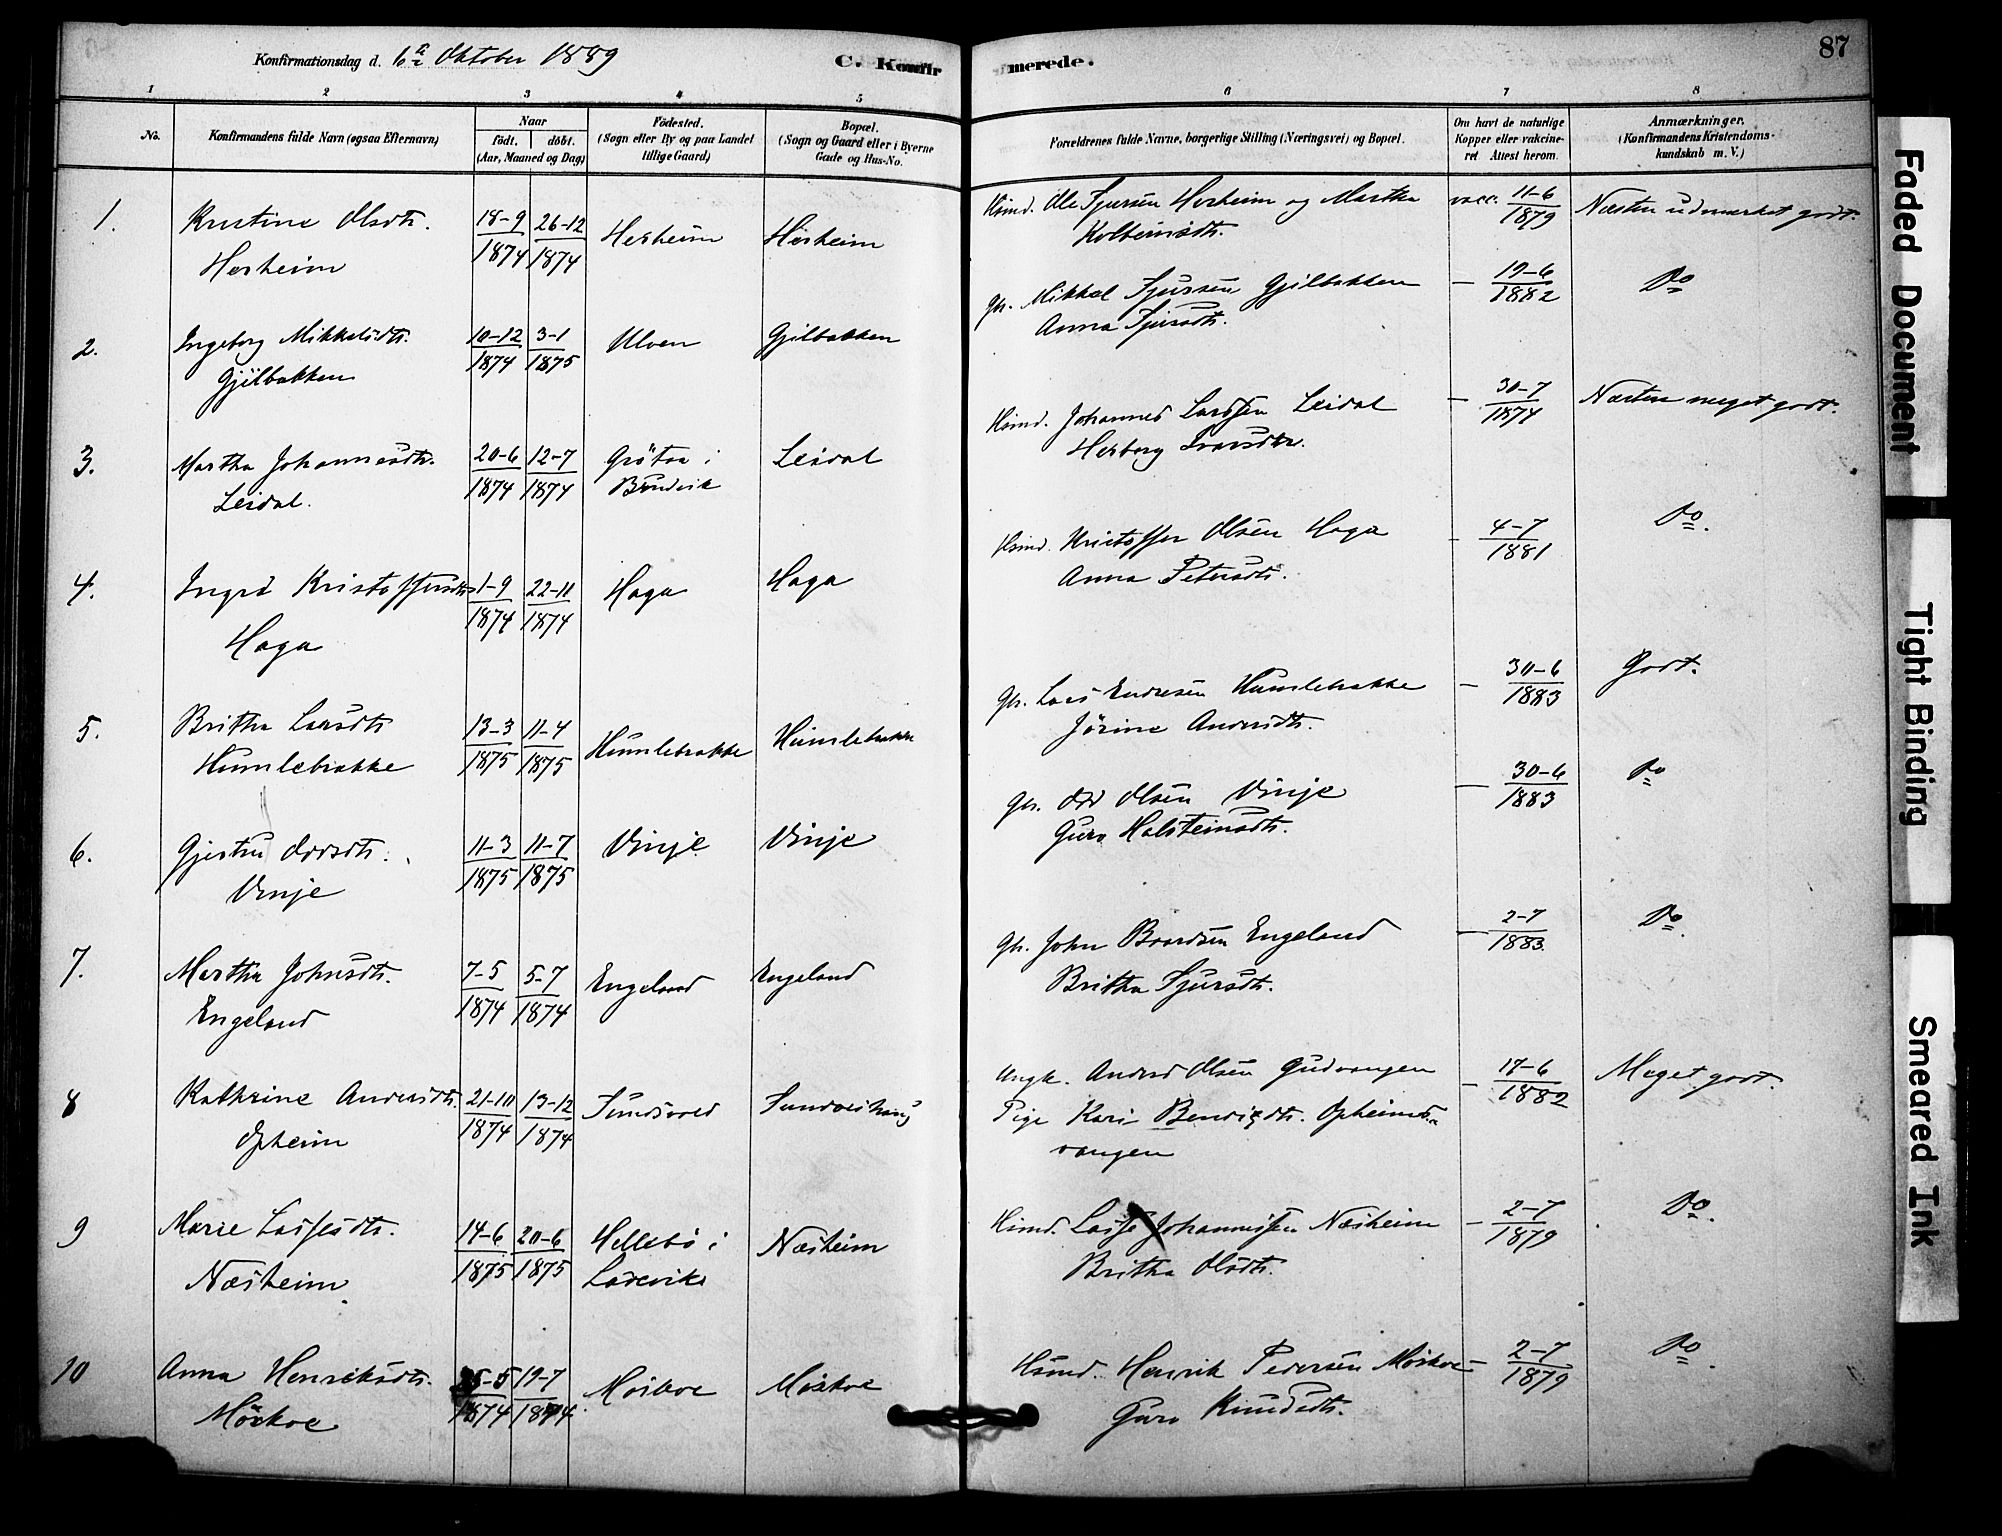 Konfirmationsdag d. 6te Oktober 1889
C. Konfirmerede.
87
1 2 3 4 5 6 7 8
No.
Konfirmandens fulde Navn (ogsaa Efternavn)
Naar
født. døbt.
(Aar, Maaned og Dag)
Fødested.
(Sogn eller By og paa Landet
tillige Gaard)
Bopæl.
(Sogn og Gaard eller i Byerne
Gade og Hus-No.
Forældrenes fulde Navne, borgerlige Stilling (Næringsvei) og Bopæl.
Om havt de naturlige
Kopper eller vakcine-
ret Attest herom.
Anmærkninger.
(Konfirmandens Kristendoms-
kundskab m. V.)
1. Kristine Olsdtr. 18-9 26-12 Herheim Herheim Hsmd. Ole Sjursen Herheim og Martha vacc. 11-6 Næsten udmærket godt.
Herheim 1874 1874 Kolbeinsdtr. 1879
2. Ingeborg Mikkelsdtr. 10-12 3-1 Ulven Gjilbakken Gbr. Mikkel Sjursen Gjilbakken — 19-6 Do
Gjilbakken 1874 1875 Anna Sjursdtr. 1882
3. Martha Johannesdtr. 20-6 12-7 Grötaa i Leidal Hsmd. Johannes Larssen Leidal — 30-7 Næsten meget godt.
Leidal. 1874 1874 Bordvik Herborg Ivarsdtr. 1874
4. Ingrd Kristoffersdtr 1-9 22-11 Haga Haga Hsmd. Kristoffer Olsen Haga — 4-7 Do.
Haga 1874 1874 Anna Petersdtr. 1881
5. Britha Larsdtr 13-3 11-4 Humlebrække Humlebrække Gbr. Lars Endresen Humlebrække — 30-6 Godt.
Humlebrække 1875 1875 Jörine Andersdtr. 1883
6. Gjertru Oddsdtr. 11-3 11-7 Vinje Vinje Gbr. Odd Olsen Vinje — 30-6 Do
Vinje 1875 1875 Guro Halsteinsdtr. 1883
7. Martha Johnsdtr. 7-5 5-7 Engeland Engeland Gbr. John Baardsen Engeland — 2-7 Do.
Engeland 1874 1874 Britha Sjursdtr. 1883
8 Kathrine Andersdtr. 21-10 13-12 Ungk. Anders Olsen Gudvangen — 17-6 Meget godt.
Opheim 1874 1874 Pige Kari Opheims- 1882
vangen
9 Marie Lassesdtr. 14-6 20-6 Hellebö i Næsheim Hsmd. Lasse Johannessen Næsheim — 2-7 Do.
Næsheim. 1875 1875 Britha Olsdtr. 1879
10 Anna Henriksdtr. 19-7 Hsmd. Henrik Pedersen — 2-7 Do.
1874 1874 Guro Knudsdtr. 1879
Faded Document
Tight Binding
Smeared Ink